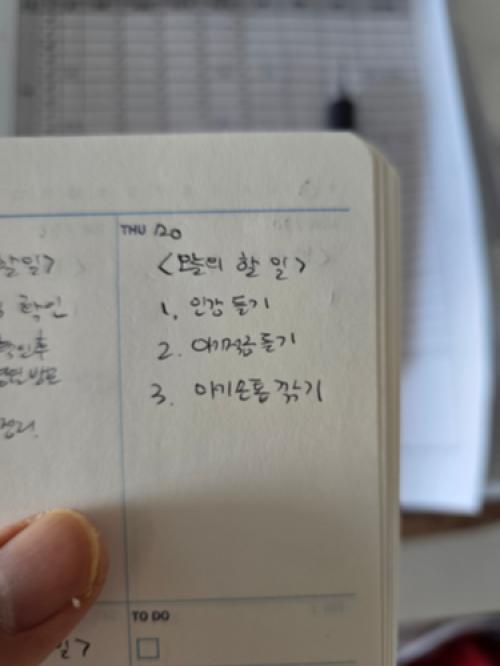 할일>
확인
확인후
정리.
THU 20
<오늘의 할 일>
1. 인강 듣기
2. 아기적금 들기
3. 아기손톱 깎기
TO DO
일>